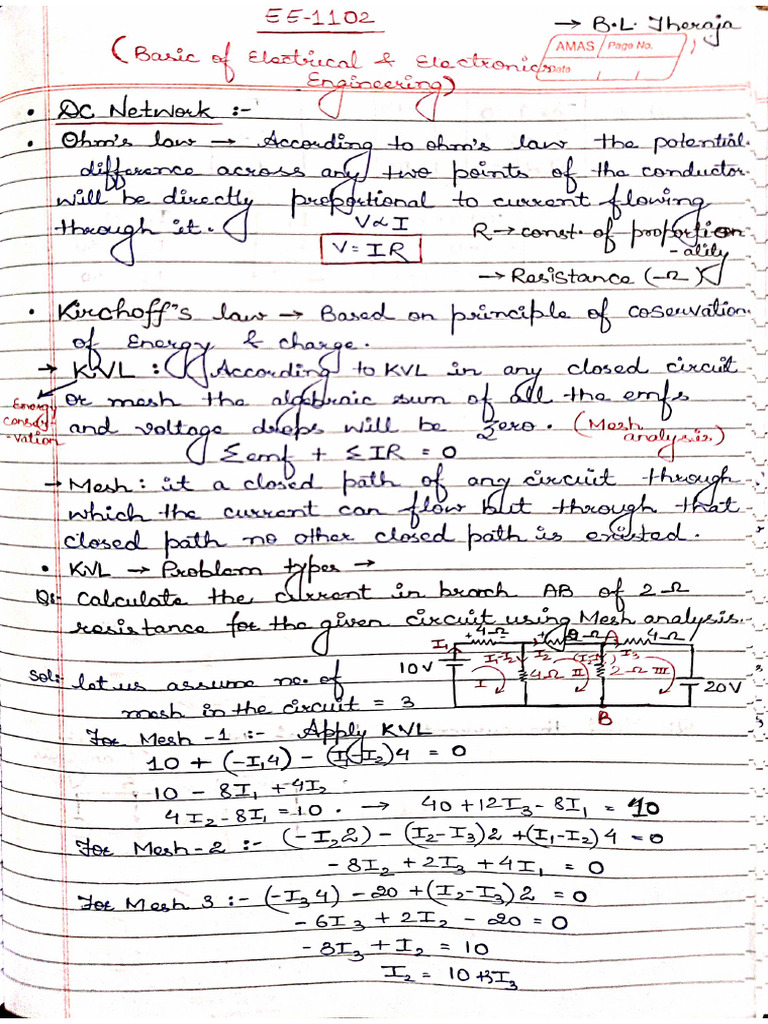 EE-1102
→ B.L. Theraja
(Basic of Electrical & Electronics
Engineering)
AMAS Page No.
Date
• DC Network :-
• Ohm's law → According to ohm's law the potential
difference across any two points of the conductor
will be directly propotional to current flowing
through it.
V∝I
V = IR
R→const. of proportion
-ality
→ Resistance (-Ω)
• Kirchoff's law → Based on principle of coservation
of Energy & charge.
→ KVL : According to KVL in any closed circuit
or mesh the algebraic sum of all the emfs
and voltage drops will be zero. (Mesh
analysis.)
Energy
conser
-vation
Σemf + ΣIR = 0
→ Mesh: it a closed path of any circuit through
which the current can flow but through that
closed path no other closed path is existed.
• KVL → Problem types →
Q:- Calculate the current in branch AB of 2Ω
resistance for the given circuit using Mesh analysis.
I₁ + 4Ω + 2Ω A 4Ω
10V I₁-I₂ I₂ I₃
I 4Ω II 2Ω III 20V
B
Sol: let us assume no. of
mesh in the circuit = 3
For Mesh -1 :- Apply KVL
10 + (-I₁4) - (I₁-I₂)4 = 0
10 - 8I₁ + 4I₂
4I₂-8I₁ = 10 . → 40+12I₃-8I₁ = 10
For Mesh-2 :- (-I₂2) - (I₂-I₃)2 +(I₁-I₂)4 =0
-8I₂ + 2I₃ + 4I₁ = 0
For Mesh 3 :- (-I₃4) - 20 +(I₂-I₃)2 = 0
-6I₃ + 2I₂ - 20 = 0
-3I₃ + I₂ = 10
I₂ = 10+3I₃